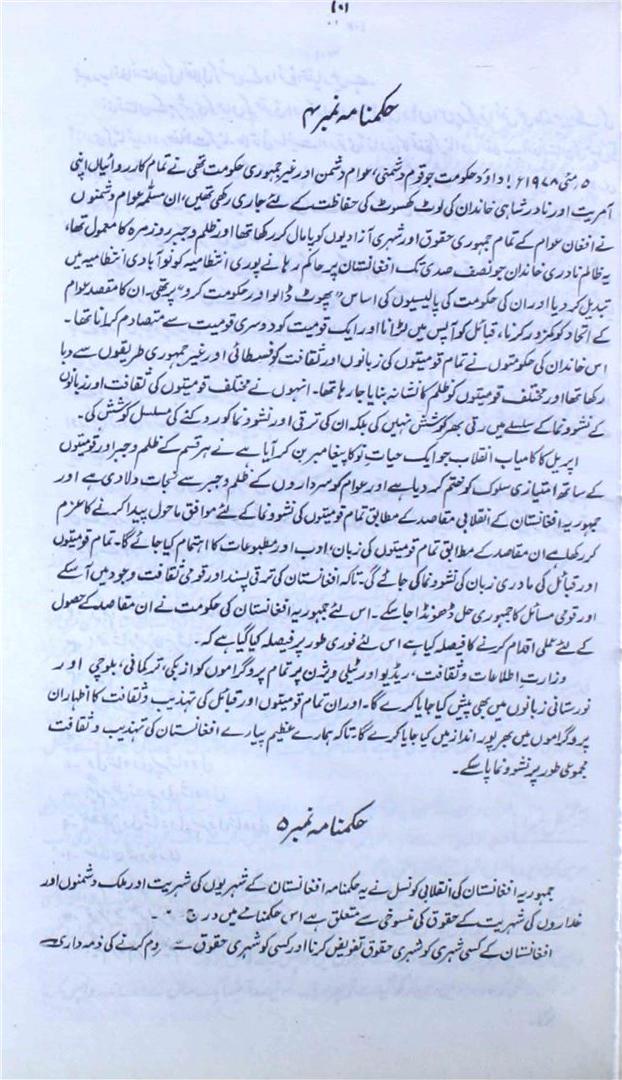 حکمنامہ نمبر ۴
۵ مئی ۱۹۷۸ء داؤد حکومت جو قوم دشمنی، عوام دشمن اور غیر جمہوری حکومت تھی نے تمام کارروائیاں اپنی
آمریت اور نادر شاہی خاندان کی لوٹ کھسوٹ کی حفاظت کے لئے جاری رکھی تھیں، ان مسلمہ عوام دشمنوں
نے افغان عوام کے تمام جمہوری حقوق اور شہری آزادیوں کو پامال کر رکھا تھا اور ظلم و جبر روزمرہ کا معمول تھا،
یہ ظالم نادری خاندان جو نصف صدی تک افغانستان پر حاکم رہا نے پوری انتظامیہ کو نوآبادی انتظامیہ میں
تبدیل کر دیا اور ان کی حکومت کی پالیسیوں کی اساس "پھوٹ ڈالو اور حکومت کرو" پر تھی۔ ان کا مقصد عوام
کے اتحاد کو کمزور کرنا، قبائل کو آپس میں لڑانا اور ایک قومیت کو دوسری قومیت سے متصادم کرانا تھا۔
اس خاندان کی حکومتوں نے تمام قومیتوں کی زبانوں اور ثقافت کو فسطائی اور غیر جمہوری طریقوں سے دبا
رکھا تھا اور مختلف قومیتوں کو ظلم کا نشانہ بنایا جا رہا تھا۔ انہوں نے مختلف قومیتوں کی ثقافت اور زبانوں
کے نشوونما کے سلسلے میں رتی بھر کوشش نہیں کی بلکہ ان کی ترقی اور نشوونما کو روکنے کی مسلسل کوشش کی۔
اپریل کا کامیاب انقلاب جو ایک حیاتِ نو کا پیغامبر بن کر آیا ہے نے ہر قسم کے ظلم و جبر اور قومیتوں
کے ساتھ امتیازی سلوک کو ختم کر دیا ہے اور عوام کو سرداروں کے ظلم و جبر سے نجات دلا دی ہے اور
جمہوریہ افغانستان کے انقلابی مقاصد کے مطابق تمام قومیتوں کی نشوونما کے لئے موافق ماحول پیدا کرنے کا عزم
کر رکھا ہے ان مقاصد کے مطابق تمام قومیتوں کی زبان، ادب اور مطبوعات کا اہتمام کیا جائے گا۔ تمام قومیتوں
اور قبائل کی مادری زبان کی نشوونما کی جائے گی۔ تاکہ افغانستان کی ترقی پسند اور قومی ثقافت وجود میں آسکے
اور قومی مسائل کا جمہوری حل ڈھونڈا جا سکے۔ اس لئے جمہوریہ افغانستان کی حکومت نے ان مقاصد کے حصول
کے لئے عملی اقدام کرنے کا فیصلہ کیا ہے اس لئے فوری طور پر فیصلہ کیا گیا ہے کہ۔
وزارتِ اطلاعات و ثقافت، ریڈیو اور ٹیلی ویژن پر تمام پروگراموں کو ازبکی، ترکمانی، بلوچی اور
نورستانی زبانوں میں بھی پیش کیا جایا کرے گا۔ اور ان تمام قومیتوں اور قبائل کی تہذیب و ثقافت کا اظہار ان
پروگراموں میں بھرپور انداز میں کیا جایا کرے گا تاکہ ہمارے عظیم پیارے افغانستان کی تہذیب و ثقافت
مجموعی طور پر نشوونما پا سکے۔
حکمنامہ نمبر ۵
جمہوریہ افغانستان کی انقلابی کونسل نے یہ حکمنامہ افغانستان کے شہریوں کی شہریت اور ملک دشمنوں اور
غداروں کی شہریت کے حقوق کی منسوخی سے متعلق ہے اس حکمنامے میں درج
افغانستان کے کسی شہری کو شہری حقوق تفویض کرنا اور کسی کو شہری حقوق سے روم کرنے کی ذمہ داری